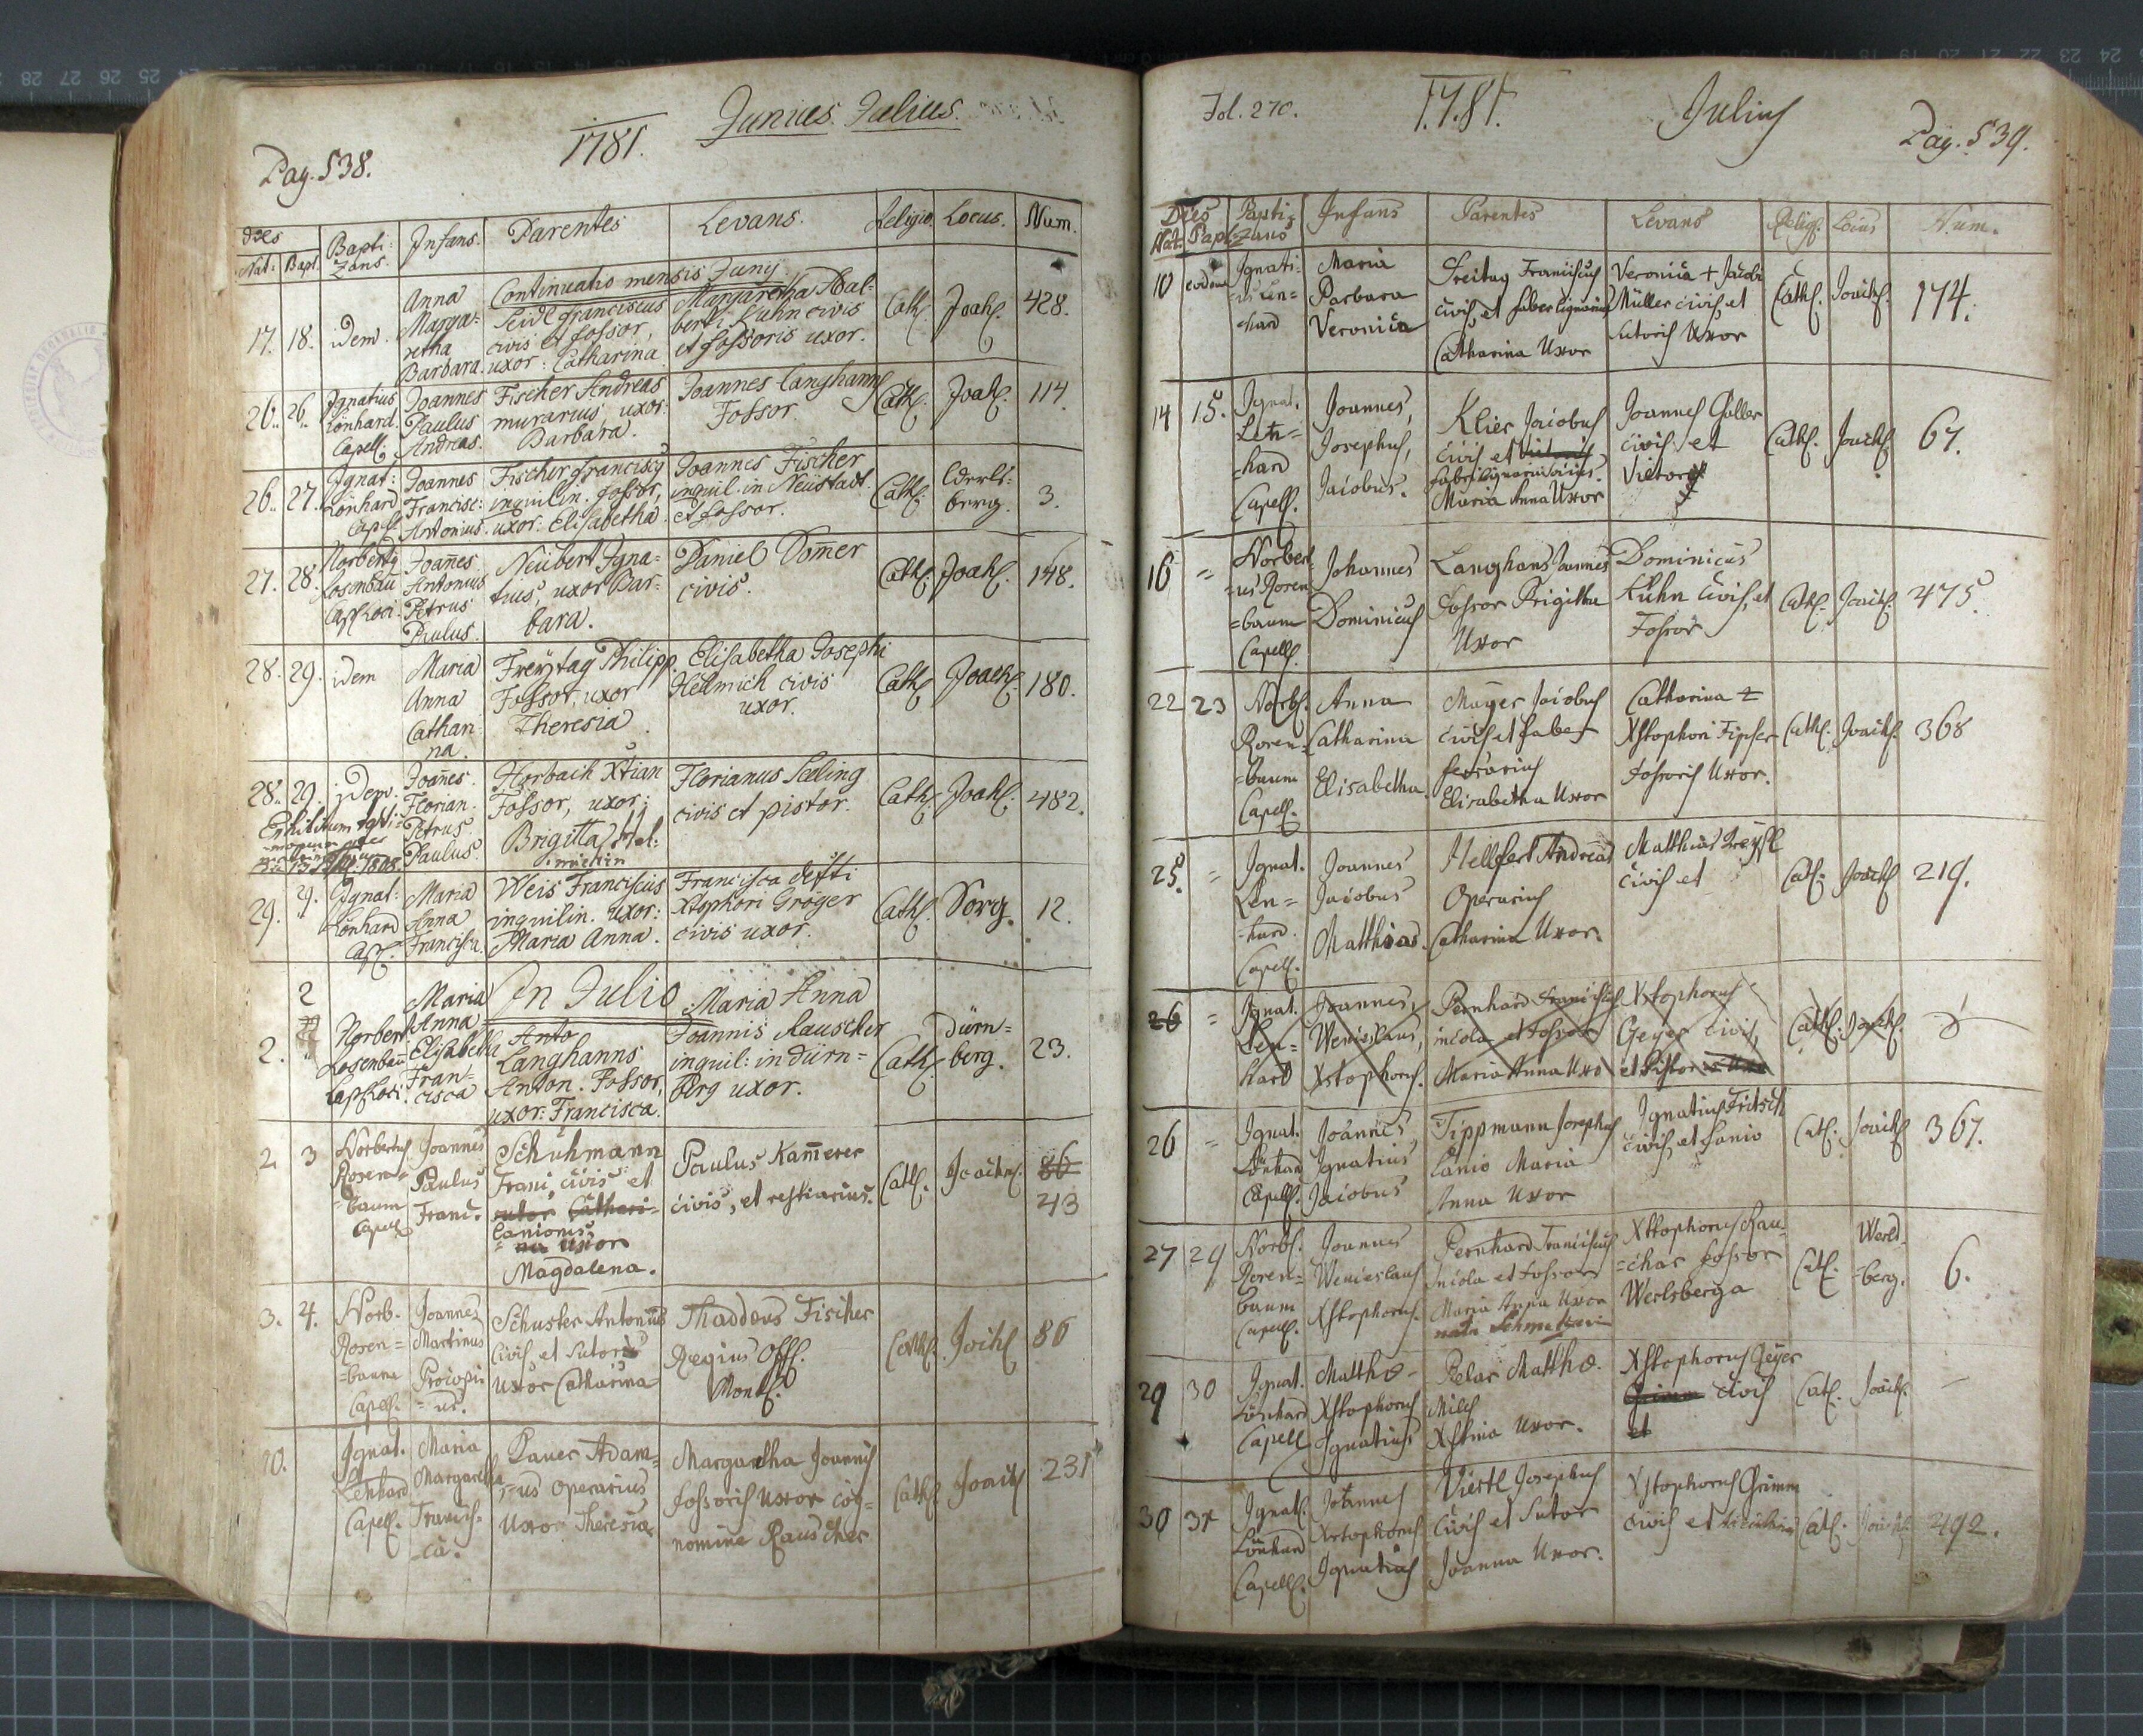 Pag. 538.
1781.
Junius. Julius.
Dies
Nat: Bapt.
Bapti:
zans.
Infans.
Parentes
Levans.
Religio.
Locus.
Num.
Continuatio mensis Junij
17. 18. idem.
Anna
Marga-
retha
Barbara.
Seidl Franciscus
civis et fossor,
uxor: Catharina
Margaretha Adal-
berti Kuhn civis
et fossoris uxor.
Cath. Joah. 428.
26. 26.
Ignatius
Lönhard.
Capell.
Joannes
Paulus
Andreas.
Fischer Andreas
murarius uxor:
Barbara.
Joannes Langhanns
Fossor.
Cath. Joah. 114.
26. 27.
Ignat:
Lönhard
Capell.
Joannes
Francisc:
Antonius.
Fischer Franciscq
inquilin. fossor,
uxor: Elisabetha.
Joannes Fischer
inquil. in Neustadt
et fossor.
Cath.
Werls-
berg.
3.
27. 28.
Norbertq
Rosenbau
Cap. Loci.
Joañes
Antonius
Petrus
Paulus.
Neübert Igna-
tius, uxor Bar-
bara.
Daniel Dom̃er
civis.
Cath. Joah. 148.
28. 29. idem
Maria
Anna
Cathari
na.
Freytag Philipp.
Fossor, uxor
Theresia.
Elisabetha Josephi
Hellmich civis
uxor.
Cath. Joach. 180.
28. 29. idem.
Joañes.
Florian.
Petrus
Paulus.
Horbach Xtian
Fossor, uxor:
Brigitta Hel:
michin
Florianus Seeling
civis et pistor.
Cath. Joah. 482.
29. 29.
Ignat:
Lonhard
Cap.
Maria
Anna
Francisca.
Weis Franciscus
inquilin. uxor:
Maria Anna.
Francisca defti
Xtophori Gröger
civis uxor.
Cath. Sorg. 12.
In Julio
2. 2
Norbert
Rosenbau
Cap. Loci.
Maria
Anna
Elisabetha
Fran-
cisca
Anto
Langhanns
Anton. Fossor,
uxor: Francisca.
Maria Anna
Joannis Rauscher
inquil: in dürn-
berg uxor.
Cath.
Dürn-
berg.
23.
2. 3
Norbertus
Rosen-
=baum
Capell
Joannes
Paulus
Franc.
Schuhmann
Franc, civis et
sutor Cathari-
Lanionis,
na Uxor
Magdalena.
Paulus Kam̃erer
civis, et restiarius.
Cath. Joach. 86
43
3. 4.
Norb.
Rosen-
=baum
Capell.
Joannes
Martinus
Procopi-
=us.
Schuster Antonius
Civis et Sutor
Uxor Catharina
Thaddeus Fischer
Regius Off.
Mont.
Cath. Joch. 86
10.
Ignat.
Lenhard
Capell.
Maria
Margaretha
Francis-
ca.
Bauer Adam-
=us Operarius
Uxor Theresia.
Margaretha Joannis
fossoris Uxor cog-
nomine Rauscher
Cath. Joach 231
Fol. 270.
1781.
Julius
Pag. 539.
Dies
Nat: Bapt.
Bapti-
zans
Infans
Parentes
Levans
Relig.
Locus
Num.
10 eodem
Ignati-
us Len-
=hard
Maria
Barbara
Veronica
Freitag Franciscus
civis, et faber lignarius
Catharina Uxor
Veronica + Jacobi
Müller civis, et
Sutoris Uxor
Cath. Joach. 174.
14 15.
Ignat.
Len-
=hard
Capell.
Joannes,
Josephus,
Jacobus.
Klier Jacobus
civis et
fabri lignarii socius.
Maria Anna Uxor
Joannes Galler
civis, et
Victor
Cath. Joach. 67.
16 =
Norbert
=us Rosen
=baum
Capell.
Johannes
Dominicus
Langhans Joannes
Fossor Brigitta
Uxor
Dominicus
Kuhn civis, et
Fossor
Cath. Joach. 475.
22 23
Norb.
Rosen-
=baum
Capell.
Anna
Catharina
Elisabetha.
Mayer Jacobus
civis et faber
ferrarius
Elisabetha Uxor
Catharina
Xstophori Tipser
fossoris Uxor.
Cath. Joach. 368
25. =
Ignat.
Len-
=hard.
Capell.
Joannes
Jacobus
Matthias.
Hellfert Andreas
Operarius
Catharina Uxor.
Matthias Kreysl
civis et
Cath. Joach 219.
26 =
Ignat.
Len-
hard
Joannes,
Wenceslaus,
Xstophorus.
Bernhard Franciscus
incola et fossor
Maria Anna Uxo
Xstophorus
Geyer civis,
et Pistor
Cath. Joach.
26 =
Ignat.
Lönhard
Capell.
Joannes,
Ignatius
Jacobus
Tippmann Josephus
Lanio Maria
Anna Uxor
Ignatius Fritsch
civis, et Lanio
Cath. Joach. 367.
27 29
Norb.
Rosen-
baum
Capell.
Joannes
Wenceslaus
Xstophorus.
Bernhard Franciscus
incola et fossor
Maria Anna Uxor
nata
Xstophorus Rau-
=char fossor
Werlsberga
Cath.
Werls-
=berg.
6.
29 30
Ignat.
Lönhard
Capell
Matthæ-
Xstophorus
Ignatius
Pelar Matthæ.
Miles
Xstina Uxor.
Xstophorus Geyer
Grimm civis
et
Cath. Joach. —
30 31
Ignat.
Lönhard
Capell.
Johannes
Xstophorus
Ignatius
Viertl Josephus
civis et Sutor
Joanna Uxor.
Xstophorus Grimm
civis et
Cath. Joach. 492.